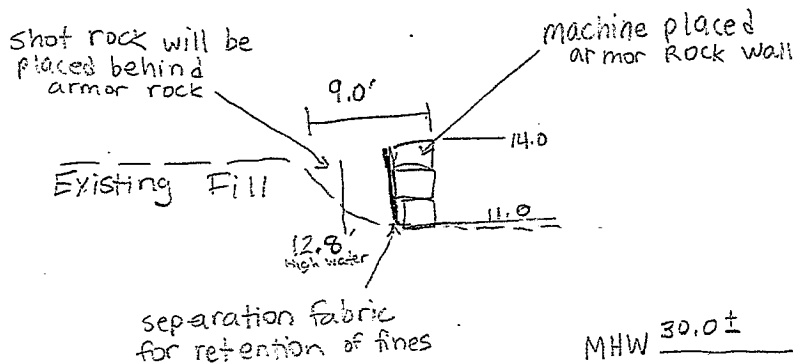 shot rock will be
placed behind
armor rock
machine placed
armor Rock wall
9.0'
14.0
Existing Fill
11.0
12.8'
High water
separation fabric
for retention of fines
MHW 30.0±